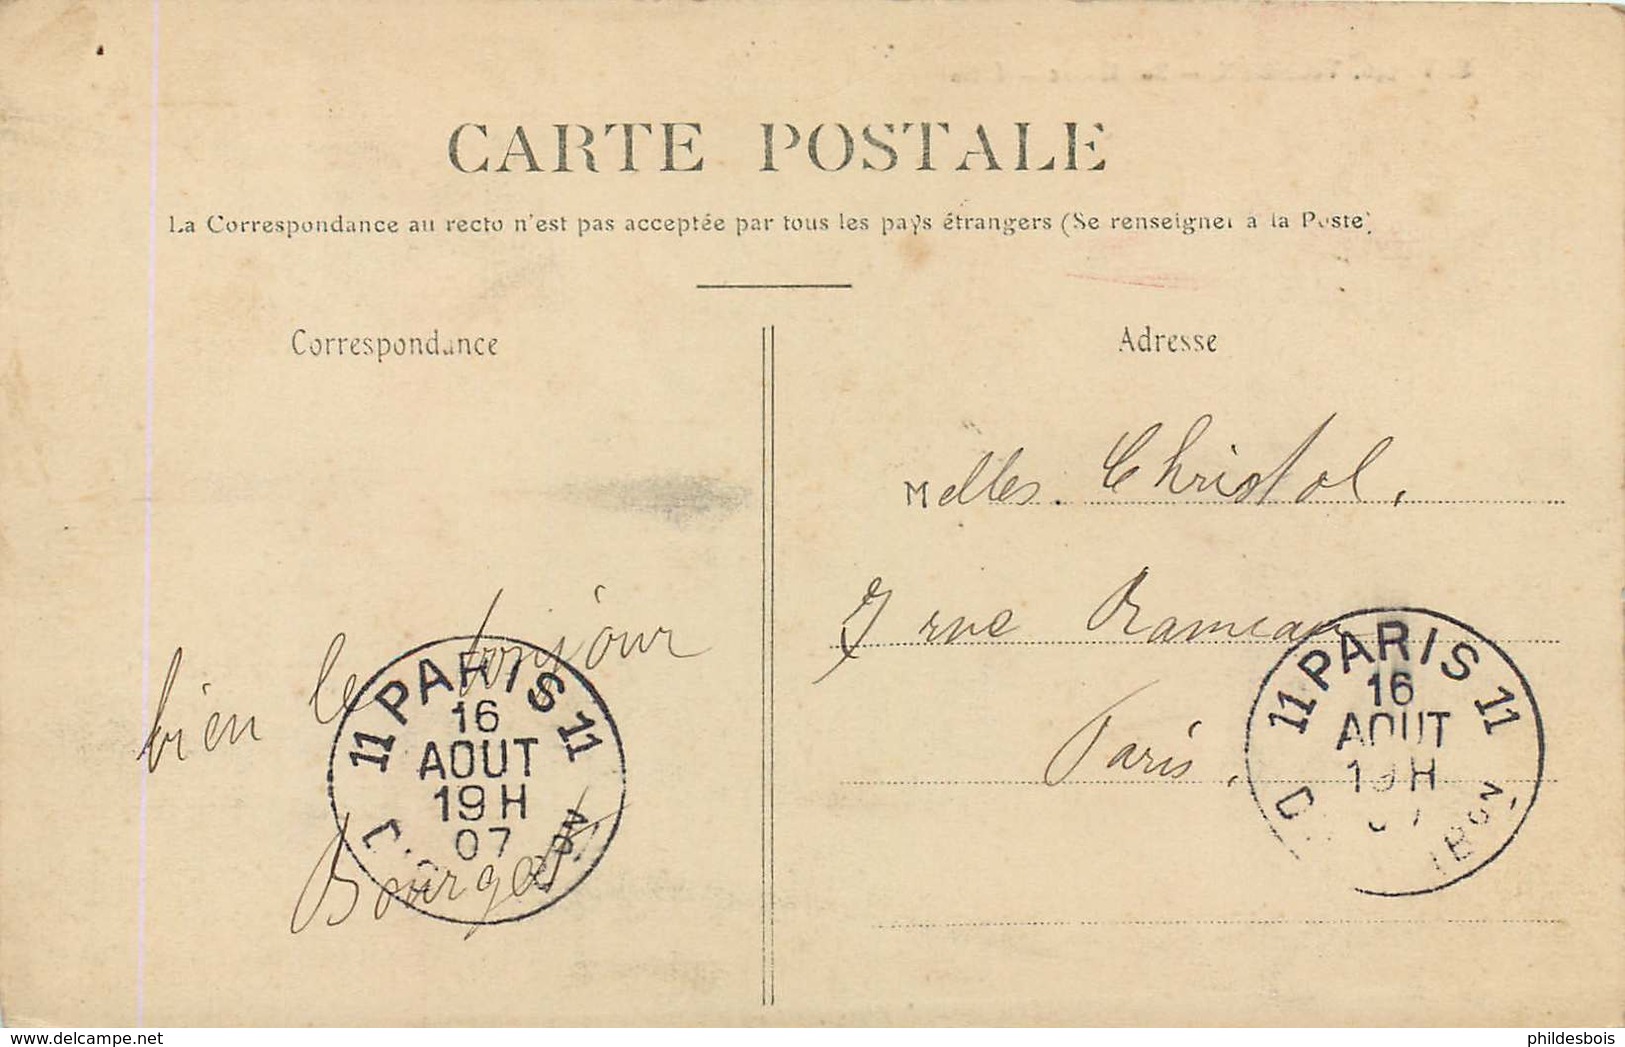 CARTE POSTALE
La Correspondance au recto n'est pas acceptée par tous les pays étrangers (Se renseigner à la Poste)
Correspondance
bien le bonjour
PARIS
11 11
16
AOUT
19 H
07
Adresse
Melles. Christol,
7 rue Rameau
Paris.
11 PARIS 11
16
AOUT
19 H
07
delcampe.net
phildesbois